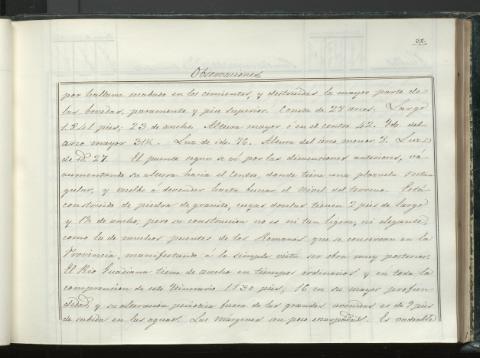 Observaciones
por hallarse minado en los cimientos, y destruidas la mayor parte de
las bovedas, paramento y piso superior. Consta de 28 arcos. Largo
1541 pies; 23 de ancho. Altura mayor ó en el centro 42. Ydª del
arco mayor 31½. Luz de ide. 76. Altura del arco menor 7. Luz
de id 27. El puente segun se vé por las dimensiones anteriores, vá
aumentando su altura hacia el centro, donde tiene una plazuela rectan
gular, y vuelve á descender hasta tomar el nivel del terreno. Está
construido de piedra de granito, cuyas dovelas tienen 2 pies de largo
y 1½ de ancho, pero su construccion no es ni tan ligera, ni elegante
como la de muchos puentes de los Romanos que se conservan en la
Provincia, manifestando á la simple vista ser obra muy posterior.
El Rio Guadiana tiene de ancho en tiempos ordinarios y en toda la
comprension de este Itinerario 1130 pies; 16 en su mayor profun
didad y su alteracion periodica fuera de las grandes avenidas es de 9 pies
de subida en las aguas. Las margenes son poco escarpadas. Es notable